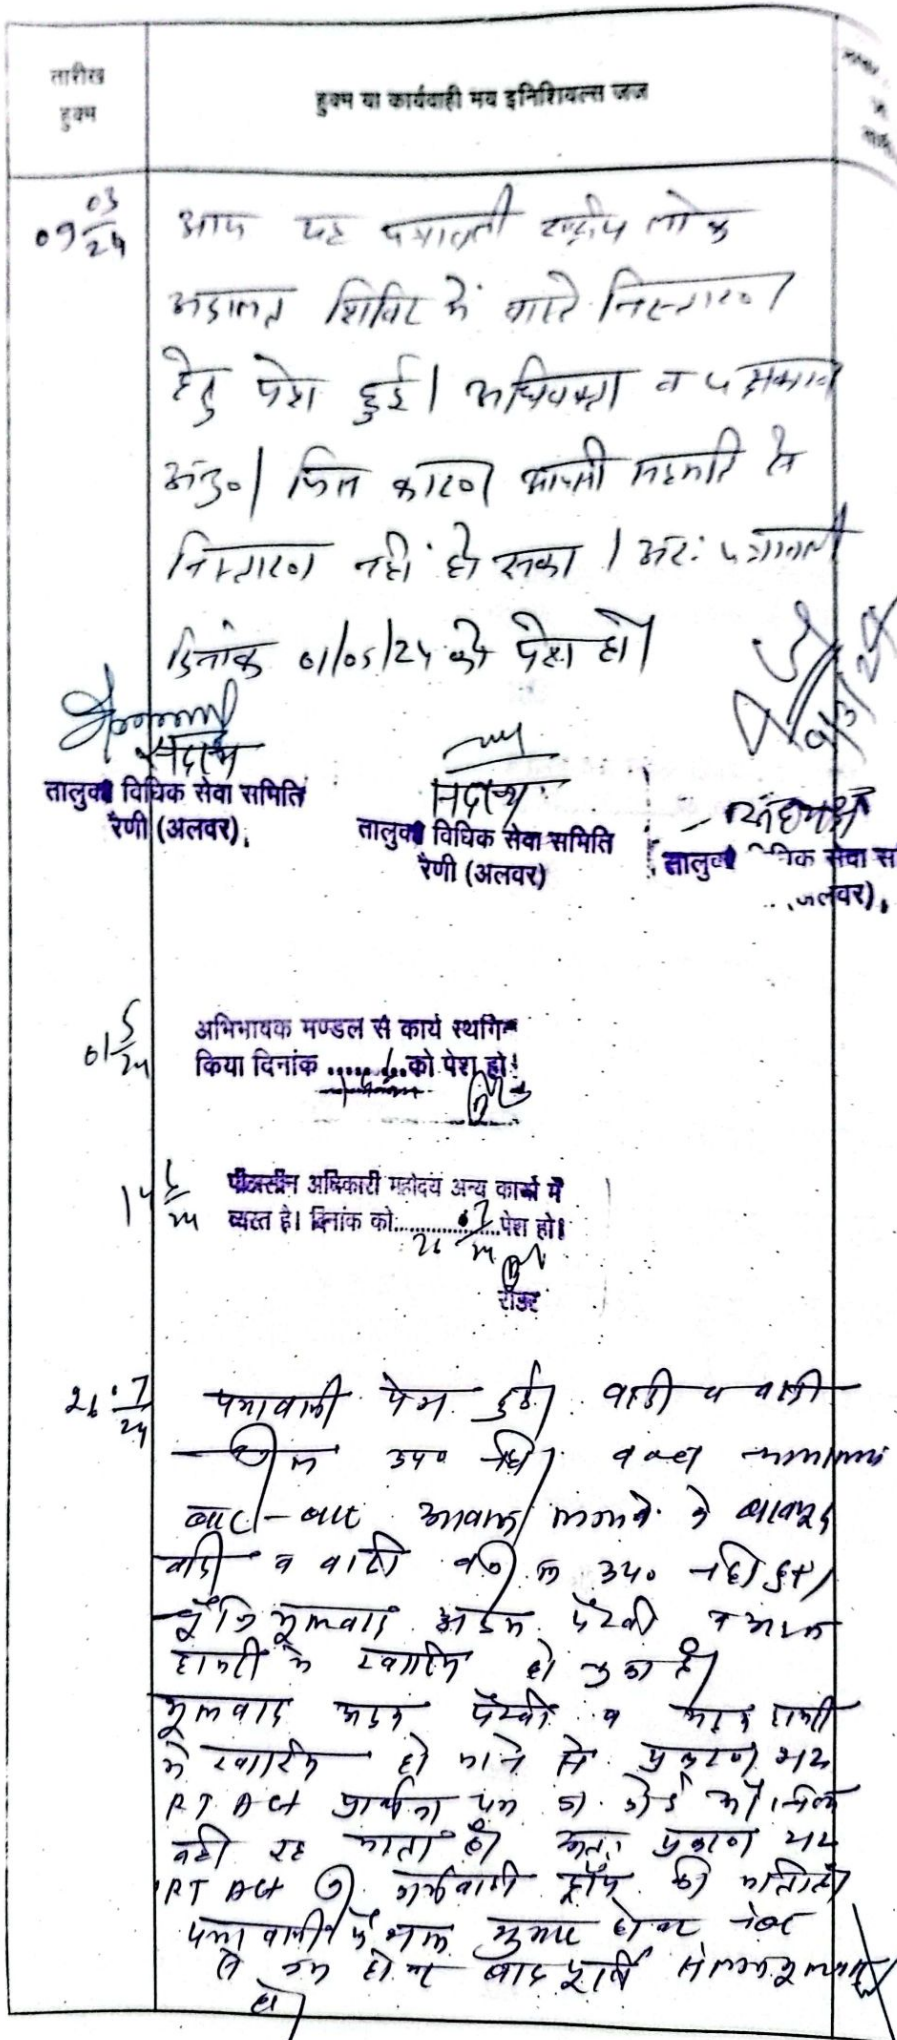 तारीख
हुक्म
हुक्म या कार्यवाही मय इनिशियल्स जज
09 03/24
आज यह पत्रावली राष्ट्रीय लोक
अदालत शिविर में वास्ते निस्तारण
हेतु पेश हुई। अधिवक्ता व पक्षकारान
अनु०। जिस कारण आपसी सहमति से
निस्तारण नहीं हो सका। अतः पत्रावली
दिनांक 01/05/24 को पेश हो।
सदस्य
तालुका विधिक सेवा समिति
रैणी (अलवर)
सदस्य
तालुका विधिक सेवा समिति
रैणी (अलवर)
अध्यक्ष
तालुका विधिक सेवा स
अलवर)
01 5/24
अभिभाषक मण्डल से कार्य स्थगित
किया दिनांक ........ को पेश हो!
14 6/24
पीठासीन अधिकारी महोदय अन्य कार्यो में
व्यस्त है। दिनांक को 26 7/24 पेश हो।
रीडर
26 7/24
पत्रावली पेश हुई। वादी व वादी
उप० नहीं। वक्त
बार-बार आवाज लगाने के बावजूद
वादी व वादी उप० नहीं हुए।
चूँकि मूलवाद अदम पैरवी व अदम
हाजरी में खारिज हो चुका है।
मूलवाद अदम पैरवी व अदम हाजरी
में खारिज हो जाने से प्रकरण मय
RT Act प्रार्थना पत्र का कोई औचित्य
नहीं रह जाता है। अतः प्रकरण मय
RT Act की कार्यवाही ड्रॉप की जाती है।
पत्रावली फैसल शुमार होकर नंबर
से कम होकर बाद पूर्ति संलग्न मूलवाद
हो।